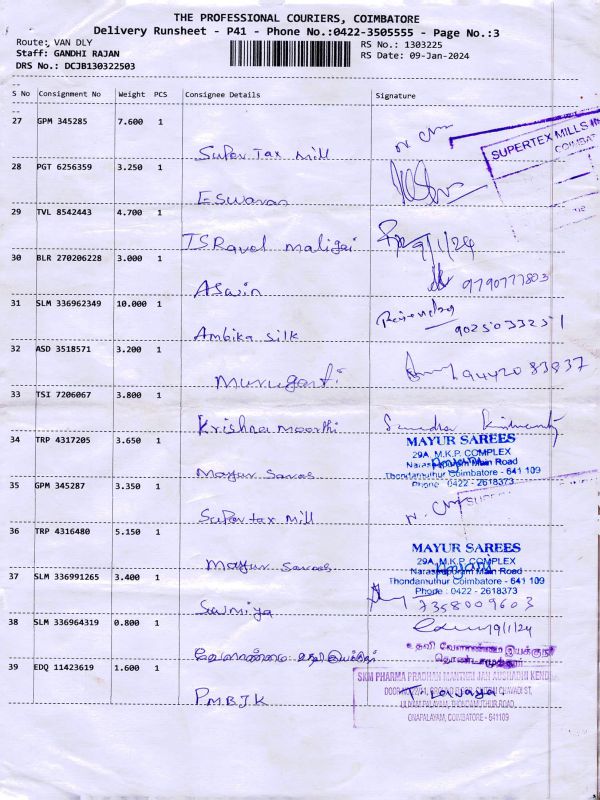 THE PROFESSIONAL COURIERS, COIMBATORE
Delivery Runsheet - P41 - Phone No.:0422-3505555 - Page No.:3
Route: VAN DLY
RS No.: 1303225
Staff: GANDHI RAJAN
RS Date: 09-Jan-2024
DRS No.: DCJB130322503
S No Consignment No Weight PCS Consignee Details Signature
27 GPM 345285 7.600 1
Super Tax mill
SUPERTEX MILLS
28 PGT 6256359 3.250 1
Eswaran
29 TVL 8542443 4.700 1
maligai 9/1/24
30 BLR 270206228 3.000 1
Aswin 9790777803
31 SLM 336962349 10.000 1
Ambika silk 9025033251
32 ASD 3518571 3.200 1
9442083837
33 TSI 7206067 3.800 1
Krishna moorthi
34 TRP 4317205 3.650 1
MAYUR SAREES
29A, M.K.P. COMPLEX
Main Road
Thondamuthur Coimbatore - 641 109
Phone : 0422 - 2618373
Mayur Sarees
35 GPM 345287 3.350 1
Super tax mill
36 TRP 4316480 5.150 1
MAYUR SAREES
29A, M.K.P. COMPLEX
Main Road
Thondamuthur Coimbatore - 641 109
Phone : 0422 - 2618373
Mayur Sarees
37 SLM 336991265 3.400 1
Sumiya 7358009603
38 SLM 336964319 0.800 1
9/1/24
39 EDQ 11423619 1.600 1
SKM PHARMA PRADHAN MANTHRI JAN AUSHADHI KENDRA
P.M.B.J.K
COIMBATORE - 641109